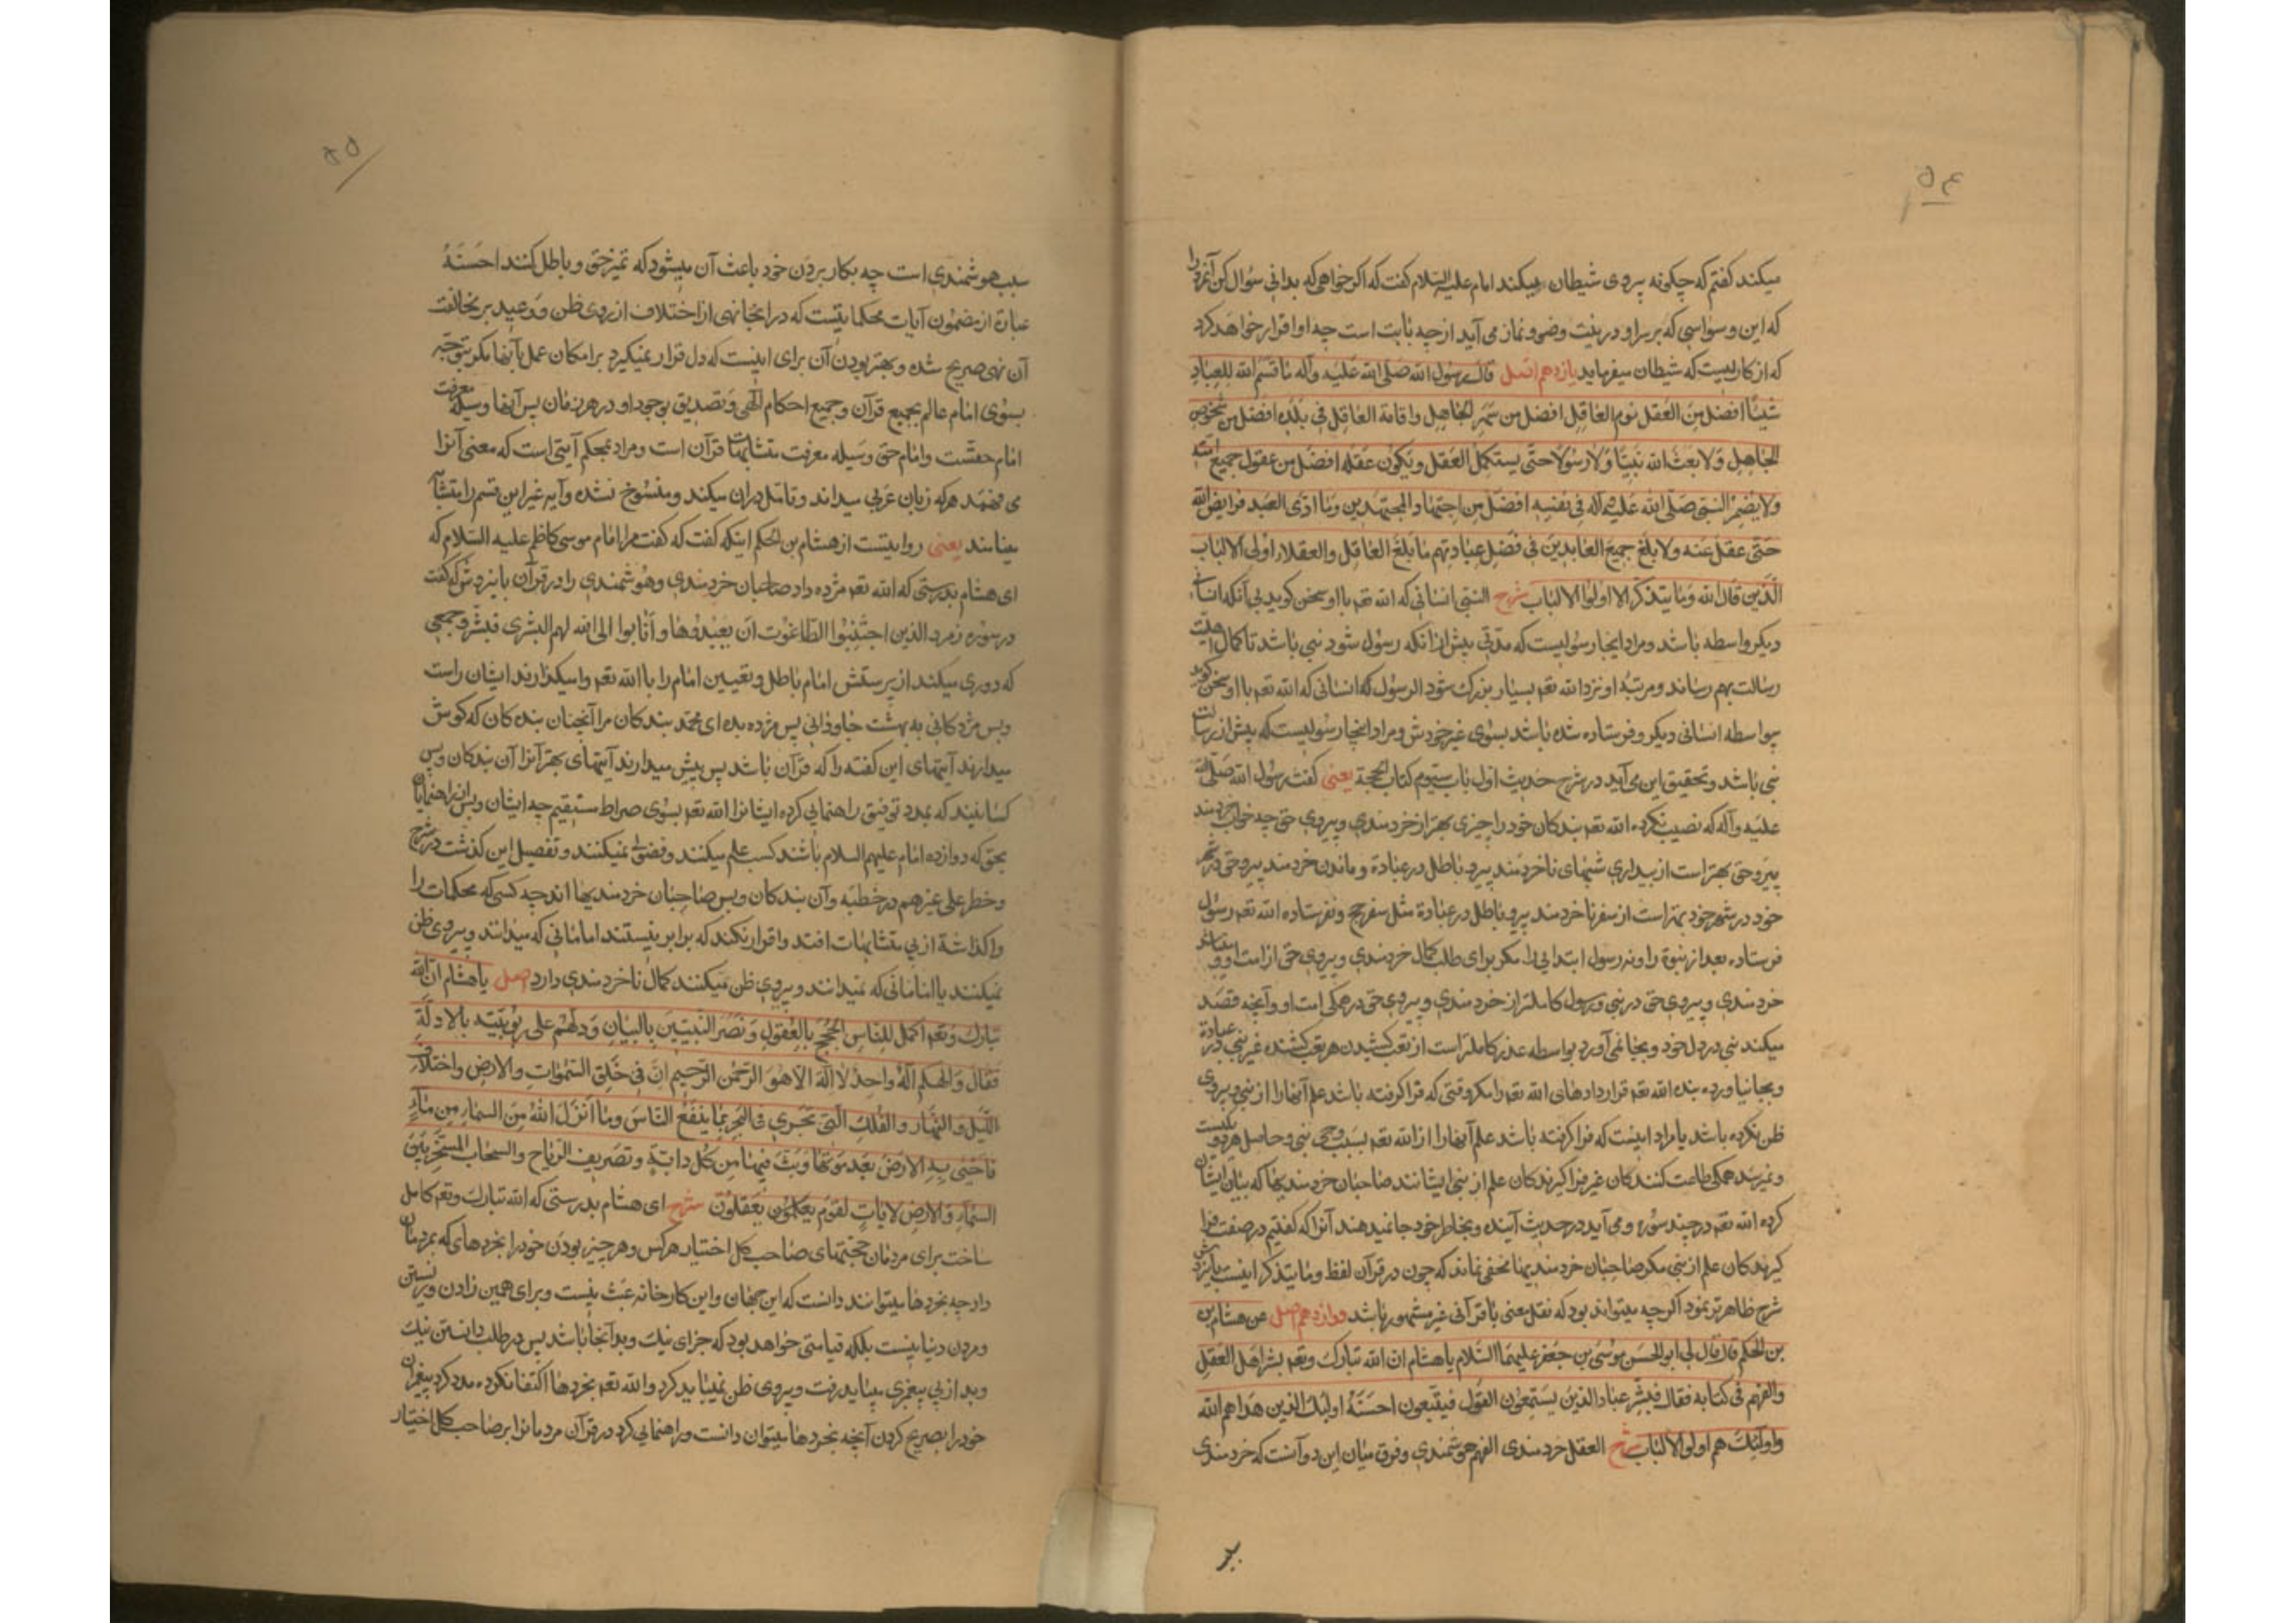 ۵۴
میکند گفتم که چگونه پیروی شیطان میکند امام علیه السلام گفت که اگر خواهی که بدانی سؤال کن آنمرد را
که این وسواسی که بر سر او در نیت وضو و نماز می آید از چه بابت است چه او اقرار خواهد کرد
که از کاریست که شیطان میفرماید یازدهم اصل قال رسول الله صلی الله علیه وآله ما قسم الله للعباد
شیئا افضل من العقل نوم العاقل افضل من سهر الجاهل واقامة العاقل فی بلده افضل من شخوص
الجاهل ولا بعث الله نبیا ولا رسولا حتی یستکمل العقل ویکون عقله افضل من عقول جمیع امته
ولا یضمر النبی صلی الله علیه وآله فی نفسه افضل من اجتهاد المجتهدین وما ادی العبد فرایض الله
حتی عقل عنه ولا بلغ جمیع العابدین فی فضل عبادتهم ما بلغ العاقل والعقلاء اولی الالباب
الذین قال الله وما یتذکر الا اولوا الالباب شرح النبی انسانی که الله تعه با او سخن گوید بی آنکه انسانی
دیگر واسطه باشد ومراد اینجا رسولیست که مدتی پیش از آنکه رسول شود نبی باشد تا کمال اهلیت
رسالت بهم رساند ومرتبه او نزد الله تعه بسیار بزرگ شود الرسول که انسانی که الله تعه با او سخن گوید
بواسطه انسانی دیگر وفرستاده شده باشد بسوی غیر خودش ومراد اینجا رسولیست که پیش از رسالت
نبی باشد وتحقیق این می آید در شرح حدیث اول باب سیوم کتاب الحجة یعنی گفت رسول الله صلی الله
علیه وآله که نصیب نکرده الله تعه بندکان خود را چیزی بهتر از خردمندی وپیروی حق چه خواب خردمند
پیرو حق بهتر است از بیداری شبهای ناخردمند پیرو باطل در عبادة وماندن خردمند پیرو حق در شهر
خود در شهر خود بهتر است از سفر ناخردمند پیرو باطل در عبادة مثل سفر حج ونفرستاده الله تعه رسول
فرستاده بعد از نبوة را ونه رسول ابتدایی را مگر برای طلب کمال خردمندی وپیروی حق از امت او
خردمندی وپیروی حق در نبی ورسول کاملتر از خردمندی وپیروی حق در همگی امت او وآنچه قصد
میکند نبی در دل خود وبجا نمی آورد بواسطه عذر کاملتر است از تعب کشیدن هر تعب کشنده غیر نبی در عبادة
وبجا نیاورده بنده الله تعه قراردادهای الله تعه را مگر وقتی که فرا گرفته باشد علم آنها را از نبی وپیروی
ظن نکرده باشد یا مراد اینست که فرا گرفته باشد علم آنها را از الله تعه بسبب وحی نبی وحاصل هر دو یکیست
ونمیرسد همگی طاعت کنندکان غیر فراگیرندکان علم از نبی ایشانند صاحبان خردمندیها که بیان ایشان
کرده الله تعه در چند سوره ومی آید در حدیث آینده وبخاطر خود جا نمیدهند آنرا که گفتیم در صفت فرا
گیرندکان علم از نبی مگر صاحبان خردمندیها مخفی نماند که چون در قرآن لفظ وما یتذکر اینست
شرح ظاهرتر بنمود اگرچه میتواند بود که نقل معنی یا قرآنی غیر مشهور باشد دوازدهم اصل عن هشام بن
بن الحکم قال قال لی ابو الحسن موسی بن جعفر علیهما السلام یا هشام ان الله تبارک وتعه بشر اهل العقل
والفهم فی کتابه فقال فبشر عباد الذین یستمعون القول فیتبعون احسنه اولئک الذین هداهم الله
واولئک هم اولو الالباب شرح العقل خردمندی الفهم هوشمندی وفرق میان این دو آنست که خردمندی
۵۵
سبب هوشمندی است چه بکار بردن خود باعث آن میشود که تمیز حق و باطل کنند احسنه
عبارة از مضمون آیات محکماتیست که در اینجا نهی از اختلاف از روی ظن ووعید بر مخالفت
آن نهی صریح شده وبهتر بودن آن برای اینست که دل قرار نمیگیرد بر امکان عمل بآنها مگر بتوجه
بسوی امام عالم بجمیع قرآن وجمیع احکام الهی وتصدیق بوجود او در هر زمان پس آنها وسیله معرفت
امام حقست وامام حق وسیله معرفت متشابهات قرآن است ومراد بمحکم آیتی است که معنی آنرا
می فهمد هر که زبان عربی میداند وتأمل در ان میکند ومنسوخ نشده وآیه غیر این قسم را متشابه
مینامند یعنی روایتست از هشام بن الحکم اینکه گفت که گفت مرا امام موسی کاظم علیه السلام که
ای هشام بدرستی که الله تعه مژده داد صاحبان خردمندی وهوشمندی را در قرآن که گفت
در سوره زمر والذین اجتنبوا الطاغوت ان یعبدوها وأنابوا الی الله لهم البشری فبشر وجمعی
که دوری میکنند از پرستش امام باطل وتعیین امام را با الله تعه وامیگذارند ایشان راست
وبس مژدگانی به بهشت جاودانی پس مژده بده ای محمد بندکان مرا آنچنان بندکان که گوش
میدارند آیتهای این گفته را که قرآن باشد پس پیش میدارند آیتهای بهتر آنرا آن بندکان وبس
کسانیند که بمدد توفیق راهنمایی کرده ایشانرا الله تعه بسوی صراط مستقیم چه ایشان وبس از راهنمایان
بحق که دوازده امام علیهم السلام باشند کسب علم میکنند وفضولی نمیکنند وتفصیل این گذشت در شرح
وخطر علی غیرهم در خطبه وآن بندکان وبس صاحبان خردمندیها اند چه کسی که محکمات را
واگذاشته از پی متشابهات افتد واقرار نکند که برابر نیستند امامانی که میدانند وپیروی ظن
نمیکنند با امامانی که نمیدانند وپیروی ظن میکنند کمال ناخردمندی دارد اصل یا هشام ان الله
تبارک وتعه اکمل للناس الحجج بالعقول ونصر النبیین بالبیان ودلهم علی ربوبیته بالادلة
فقال والهکم اله واحد لا اله الا هو الرحمن الرحیم ان فی خلق السموات والارض واختلاف
اللیل والنهار والفلک التی تجری فی البحر بما ینفع الناس وما انزل الله من السماء من ماء
فاحیی به الارض بعد موتها وبث فیها من کل دابة وتصریف الریاح والسحاب المسخر بین
السماء والارض لایات لقوم یعقلون شرح ای هشام بدرستی که الله تبارک وتعه کامل
ساخت برای مردمان حجتهای صاحب کل اختیار هر کس وهر چیز بودن خود را بخردهای که بمردمان
داد چه بخردها میتوانند دانست که این جهان واین کارخانه عبث نیست وبرای همین زادن وزیستن
ومردن دنیا نیست بلکه قیامتی خواهد بود که جزای نیک وبد آنجا باشد پس در طلب دانستن نیک
وبد از پی پیغمبری میباید رفت وپیروی ظن نمیباید کرد والله تعه بخردها اکتفا نکرده مدد کرد پیغمبران
خود را بصریح کردن آنچه بخردها میتوان دانست وراهنمایی کرد در قرآن مردمانرا بر صاحب کل اختیار